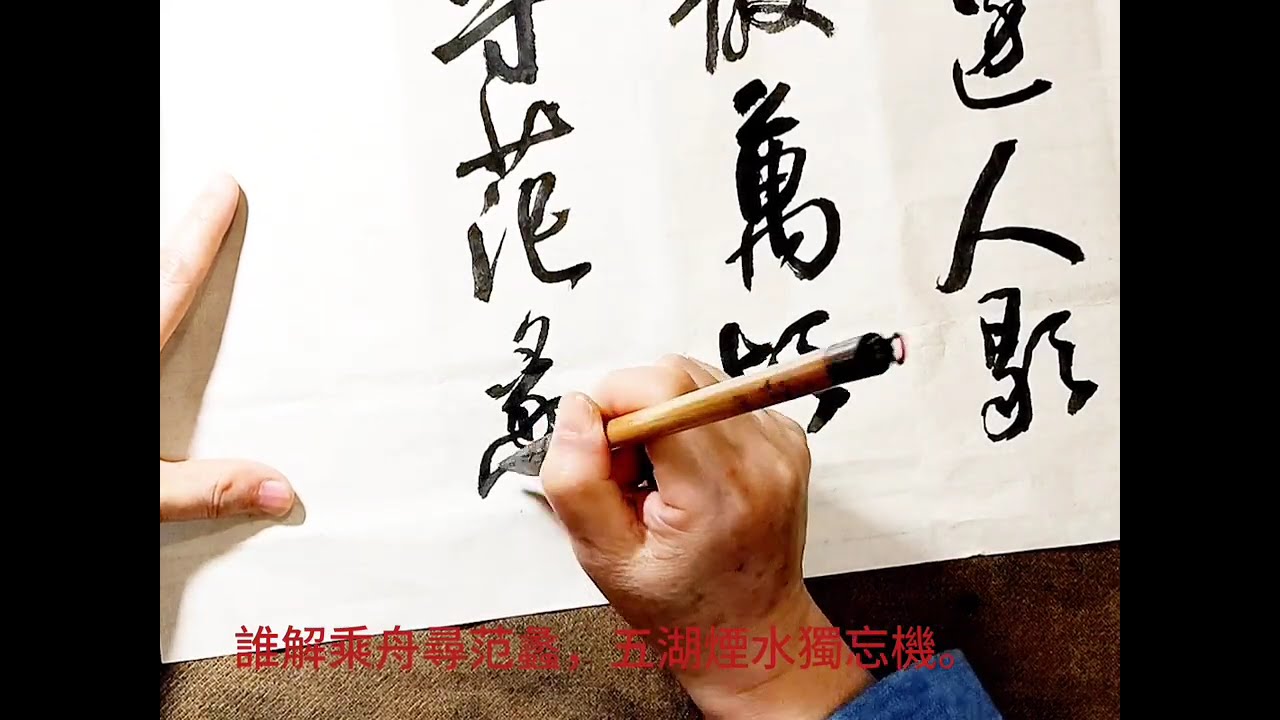 邊人歇
散萬頃
尋范蠡
誰解乘舟尋范蠡，五湖煙水獨忘機。